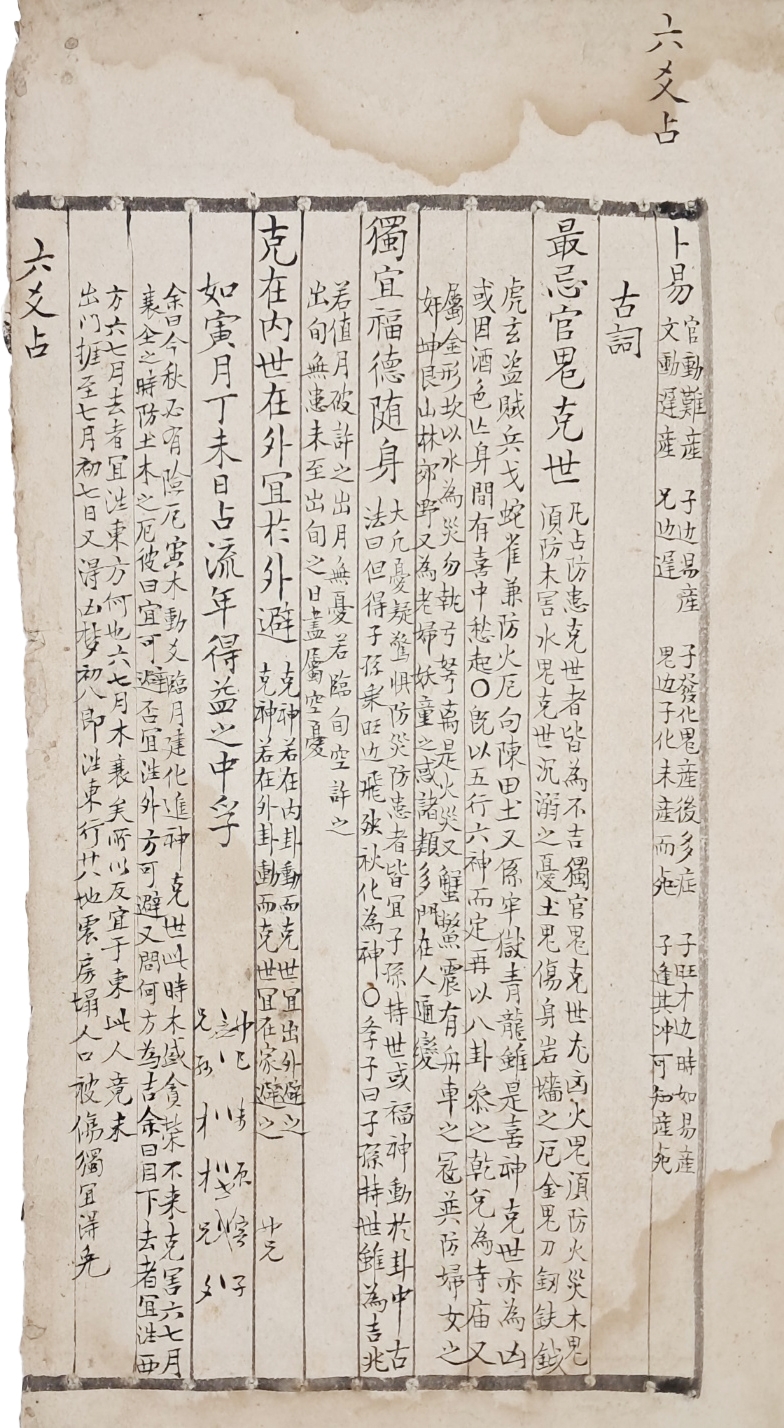 六爻占
卜易
官動難產 子边易產 子發化鬼產後多症 子旺才边時如易產
文動遲產 兄边遲 鬼边子化未產而 子逢其冲可知產
古詞
最忌官鬼克世
凡占防患克世者皆為不吉獨官鬼克世尤凶火鬼須防火災木鬼
須防木害水鬼克世沉溺之憂土鬼傷身岩墻之厄金鬼刀劍鉄鉞
虎玄盜賊兵戈蛇雀兼防火厄勾陳田土又係牢獄青龍雖是喜神克世亦為凶
或因酒色亡身間有喜中愁起〇既以五行六神而定再以八卦參之乾兌為寺庙又
屬金形坎以水為災勿執弓弩离是火災又蟹鱉震有舟車之冦巽防婦女之
奸坤艮山林郊野又為老婦妖童之惑諸類多門在人通變
獨宜福德随身
大凡憂疑驚惧防災防患者皆宜子孫持世或福神動於卦中古
法曰但得子孫乘旺边飛殃秋化為神〇李子曰子孫持世雖為吉兆
若值月破許之出月無憂若臨旬空許之
出旬無患未至出旬之日盡屬空憂
克在內世在外宜於外避
克神若在內卦動而克世宜出外避之
克神若在外卦動而克世宜在家避之
如寅月丁未日占流年得益之中孚
余曰今秋必有險厄寅木動爻臨月建化進神克世此時木盛貪榮不来克害六七月
衰金之時防土木之厄彼曰宜可避否宜往外方可避又問何方為吉余曰目下去者宜往西
方六七月去者宜往東方何也六七月木衰矣所以反宜于東此人竟未
出门捱至七月初七日又得凶梦初八即往東行廿八地震房塌人口被傷獨宜得免
六爻占